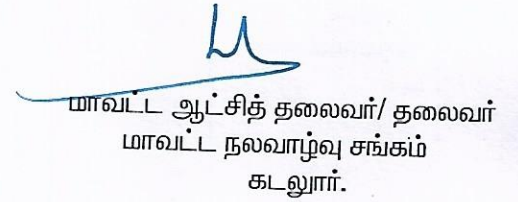 மாவட்ட ஆட்சித் தலைவர்/ தலைவர்
மாவட்ட நலவாழ்வு சங்கம்
கடலூர்.